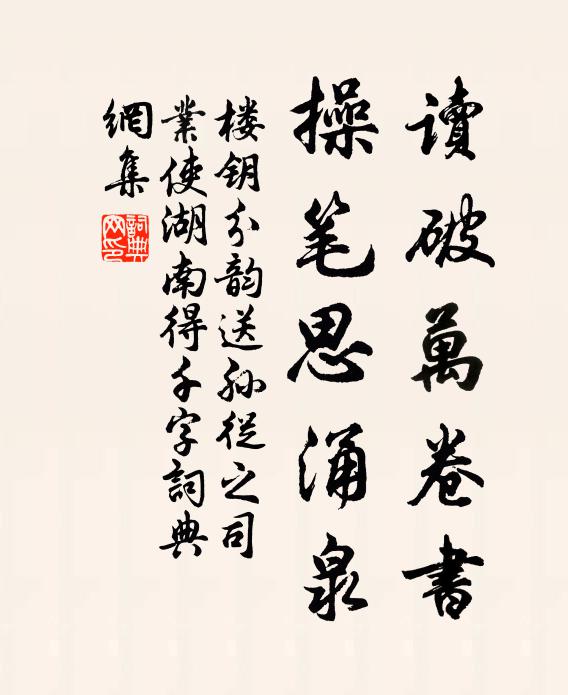 讀破萬卷書
操笔思涌泉
楼钥分韵送孙從之司
業使湖南得千字詞典
網集
詞典
网印